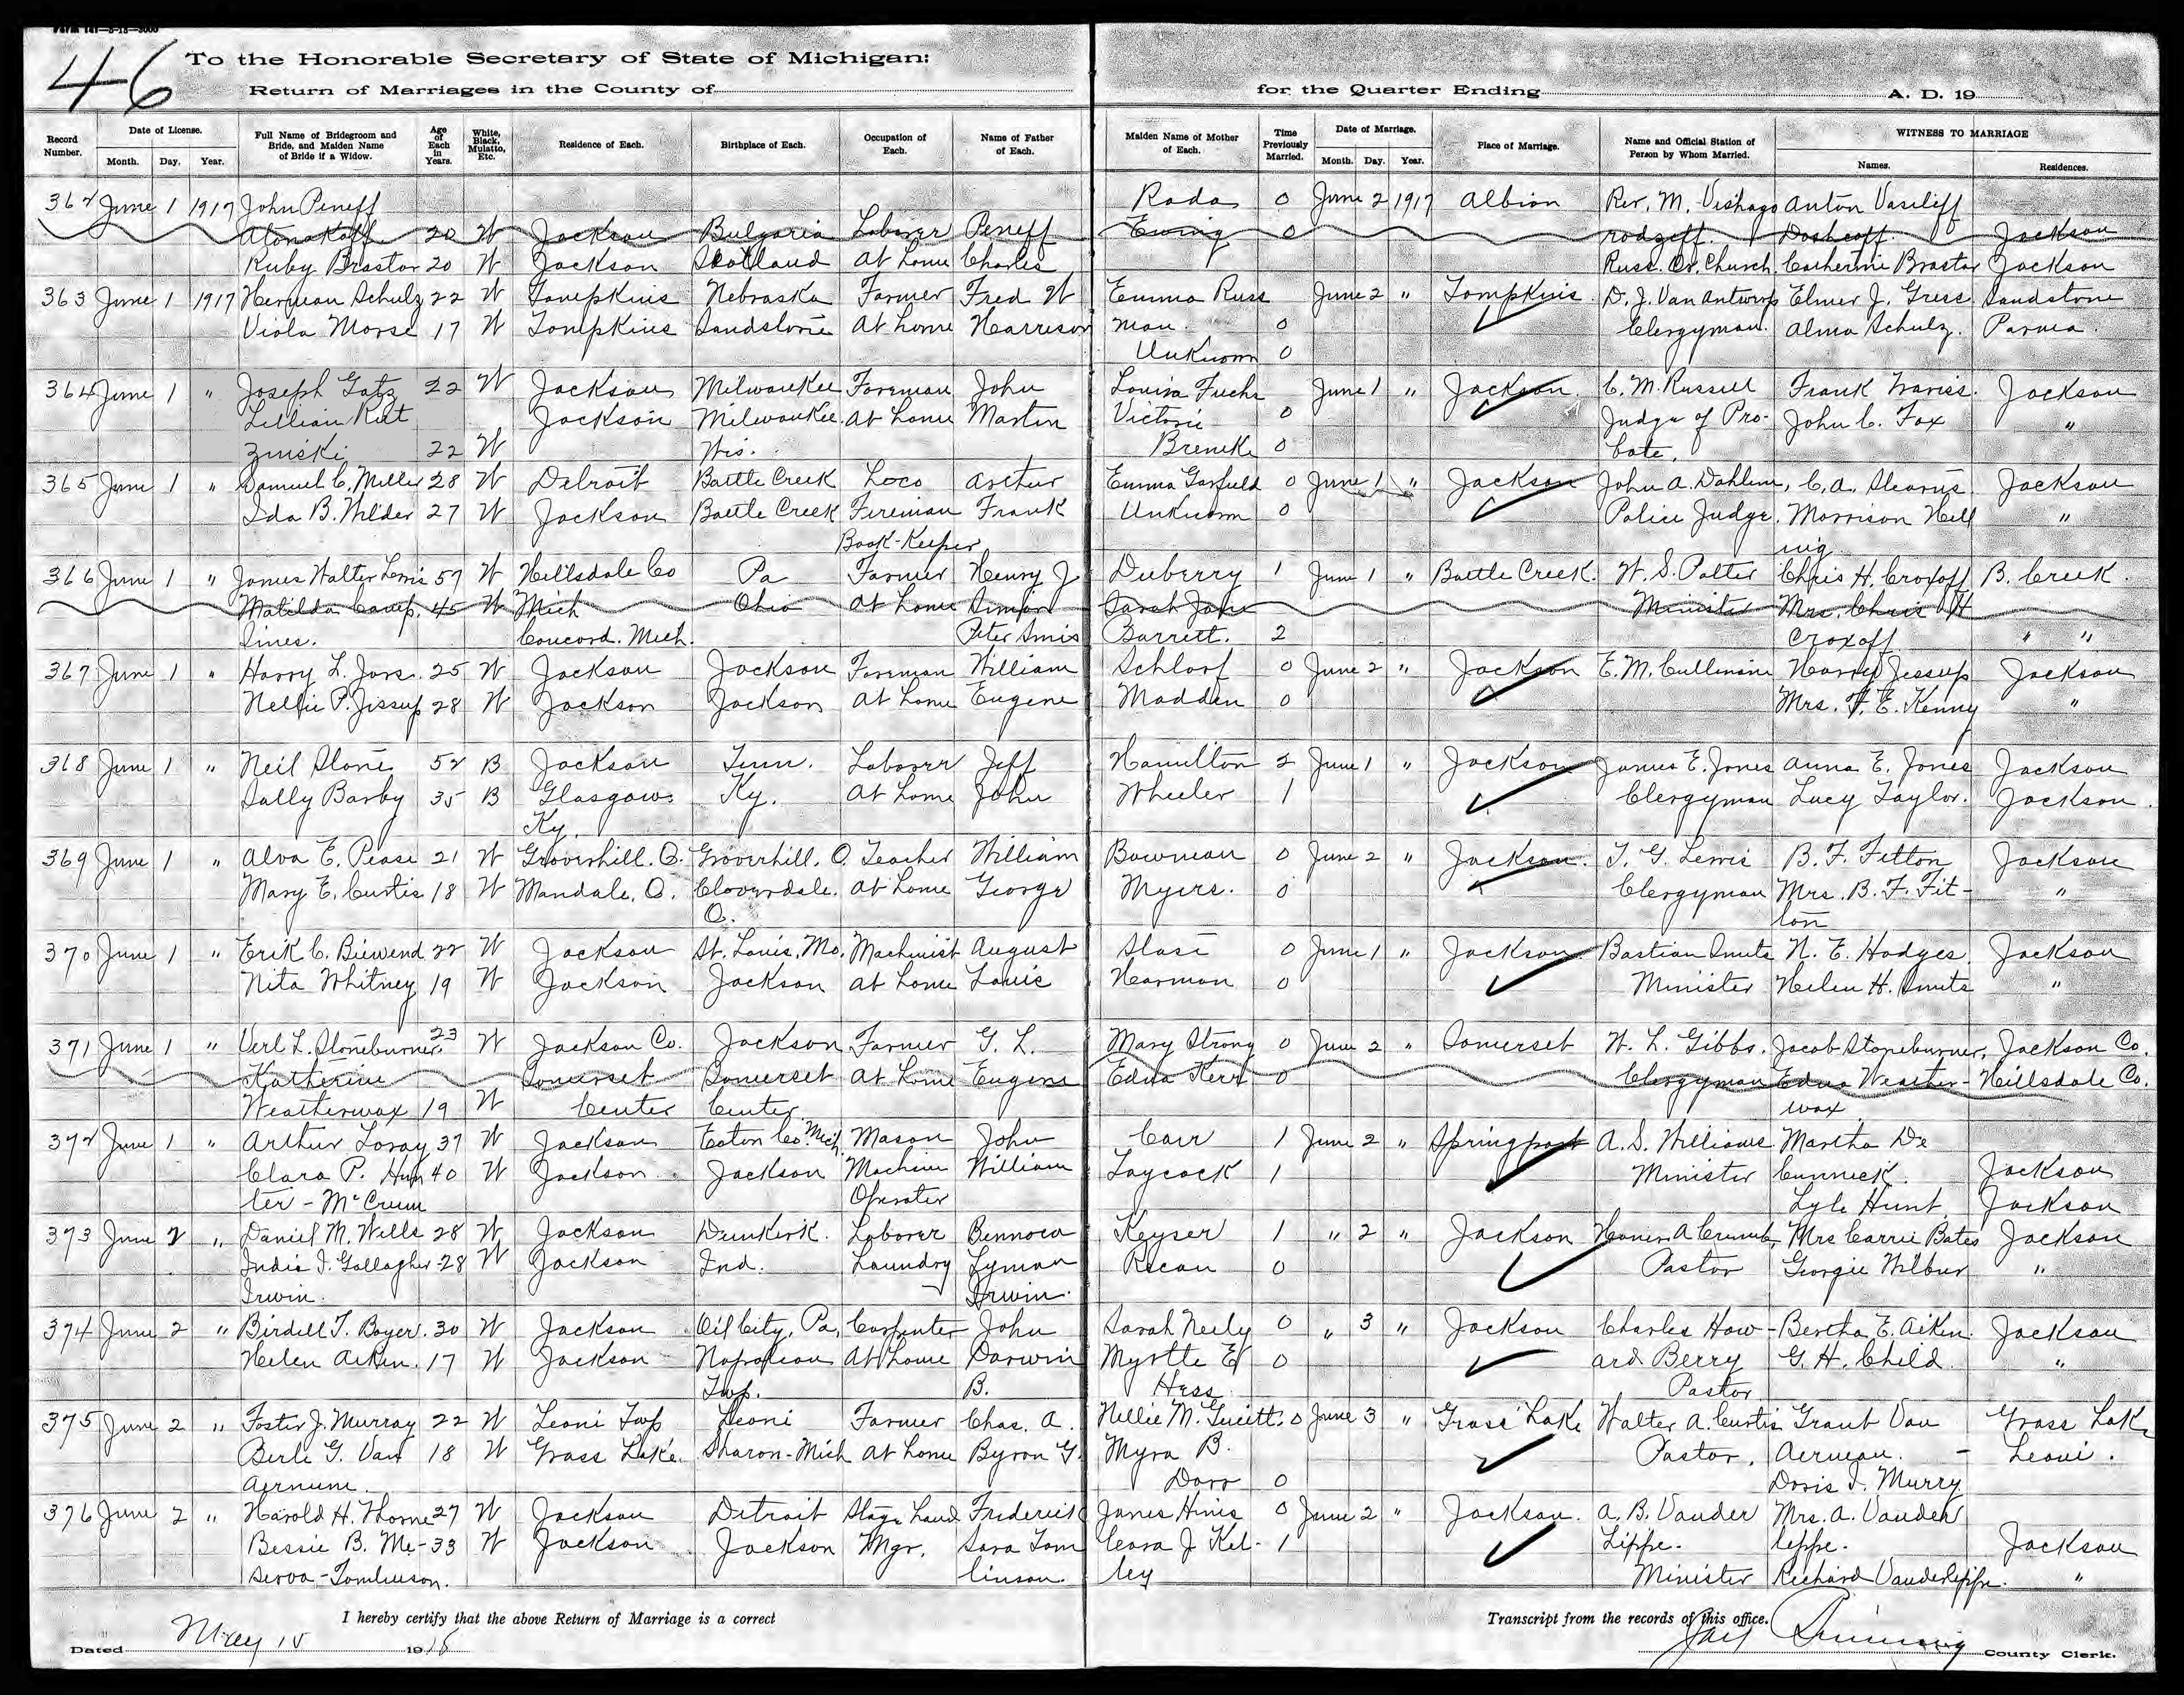 Form 141—5-15—3000
46
To the Honorable Secretary of State of Michigan:
Return of Marriages in the County of
for the Quarter Ending A. D. 19
Record Number. Date of License. Month. Day. Year. Full Name of Bridegroom and Bride, and Maiden Name of Bride if a Widow. Age of Each in Years. White, Black, Mulatto, Etc. Residence of Each. Birthplace of Each. Occupation of Each. Name of Father of Each. Maiden Name of Mother of Each. Time Previously Married. Date of Marriage. Month. Day. Year. Place of Marriage. Name and Official Station of Person by Whom Married. WITNESS TO MARRIAGE Names. Residences.
362 June 1 1917 John Peneff Rada 0 June 2 1917 Albion Rev. M. Anton Vasileff
Atonakoff 20 W Jackson Bulgaria Laborer Peneff Ewing 0 Doshcoff. Jackson
Ruby Brastor 20 W Jackson Scotland At home Charles Russ. Or. Church. Catherine Brastor Jackson
363 June 1 1917 Herman Schulz 22 W Tompkins Nebraska Farmer Fred W Emma Russ June 2 " Tompkins. D. J. Van Antwerp Elmer J. Gress Sandstone
Viola Morse 17 W Tompkins Sandstone At home Harrison man. 0 Clergyman. Alma Schulz. Parma.
Unknown 0
364 June 1 " Joseph Gatz 22 W Jackson Milwaukee Foreman John Louisa Fuchs June 1 " Jackson. C. M. Russell Frank Traviss. Jackson
Lillian Rut Jackson Milwaukee. At home Martin Victoria 0 Judge of Pro- John C. Fox "
zinski 22 W Wis. Brencke 0 bate.
365 June 1 " Samuel C. Miller 28 W Detroit Battle Creek Loco Arthur Emma Garfield 0 June 1 " Jackson John A. Dahlem, C. A. Stearns Jackson
Ida B. Wilder 27 W Jackson Battle Creek Fireman Frank Unknown 0 Police Judge. Morrison Hell "
Book-Keeper wig
366 June 1 " James Walter Lewis 57 W Hillsdale Co Pa Farmer Henry J. Duberry 1 June 1 " Battle Creek. W. S. Potter Chris H. Croxoff B. Creek.
Matilda Camp. 45 W Mich Ohio At home Simpson Sarah Jane Minister Mrs. Chris H
Sines. Concord. Mich. Peter Barrett. 2 Croxoff " "
367 June 1 " Harry L. 25 W Jackson Jackson Foreman William Schlorf 0 June 2 " Jackson E. M. Cullinane Harry Jessup Jackson
Nellie P. Jessup 28 W Jackson Jackson At home Eugene Madden 0 Mrs. F. E. Kenny "
368 June 1 " Neil Stone 52 B Jackson Tenn. Laborer Jeff Hamilton 2 June 1 " Jackson James E. Jones Anna E. Jones Jackson
Sally Barby 35 B Glasgow. Ky. At home John Wheeler 1 Clergyman Lucy Taylor. Jackson.
Ky.
369 June 1 " Alva E. Pease 21 W Groverhill. O. Groverhill. O. Teacher William Bowman 0 June 2 " Jackson. T. G. Lewis B. F. Fitton Jackson
Mary E. Curtis 18 W Mandale. O. Cloverdale. At home George Myers. 0 Clergyman Mrs. B. F. Fit- "
O. ton
370 June 1 " Erik C. Biewend 22 W Jackson St. Louis, Mo. Machinist August 0 June 1 " Jackson Bastian Smits N. E. Hodges Jackson
Nita Whitney 19 W Jackson Jackson At home Louis Harmon 0 Minister Helen H. Smits "
371 June 1 " Verl L. Stoneburner. 23 W Jackson Co. Jackson Farmer G. L. Mary Strong 0 June 2 " Somerset W. L. Gibbs. Jacob Stoneburner, Jackson Co.
Katherine Somerset Somerset At home Eugene Edna Kerr 0 Clergyman Edna Weather- Hillsdale Co.
Weatherwax 19 W Center Center wax
372 June 1 " Arthur Loray 37 W Jackson Eaton Co. Mich. Mason John Carr 1 June 2 " Springport A. S. Williams Martha De
Clara P. Hun 40 W Jackson Jackson Machine William Laycock 1 Minister Cunnick. Jackson
ter - McCrum Operator Lyle Hunt. Jackson
373 June 2 " Daniel M. Wells 28 W Jackson Dunkirk. Laborer Keyser 1 " 2 " Jackson Homer A Crumb, Mrs Carrie Bates Jackson
India I. Gallagher-28 W Jackson Ind. Laundry Lyman 0 Pastor Georgie Wilbur "
Irwin. Irwin.
374 June 2 " Birdell T. Boyer. 30 W Jackson Oil City, Pa. Carpenter John Sarah Neely 0 " 3 " Jackson Charles How- Bertha E. Aiken. Jackson
Helen Aiken. 17 W Jackson Napoleon At home Darwin Myrtle E 0 ard Berry G. H. Child. "
Twp. B. Hess Pastor
375 June 2 " Foster J. Murray 22 W Leoni Twp Leoni Farmer Chas. A. Nellie M. 0 June 3 " Grass Lake Walter A. Curtis Grant Van Grass Lake
Berle G. Van 18 W Grass Lake. Sharon-Mich At home Byron G. Myra B. Pastor. Aernam. - Leoni.
Aernum. Dorr 0 Doris I. Murry
376 June 2 " Harold H. Thorne 27 W Jackson Detroit Stage hand Frederick 0 June 2 " Jackson. A. B. Vander Mrs. A. Vander
Bessie B. Me-33 W Jackson Jackson Mgr. Tom Cora J Kel- 1 Lippe. lippe. Jackson
serva-Tomlinson. linson. ley Minister Richard Vanderlippe. "
I hereby certify that the above Return of Marriage is a correct Transcript from the records of this office.
Dated May 15 1918
County Clerk.